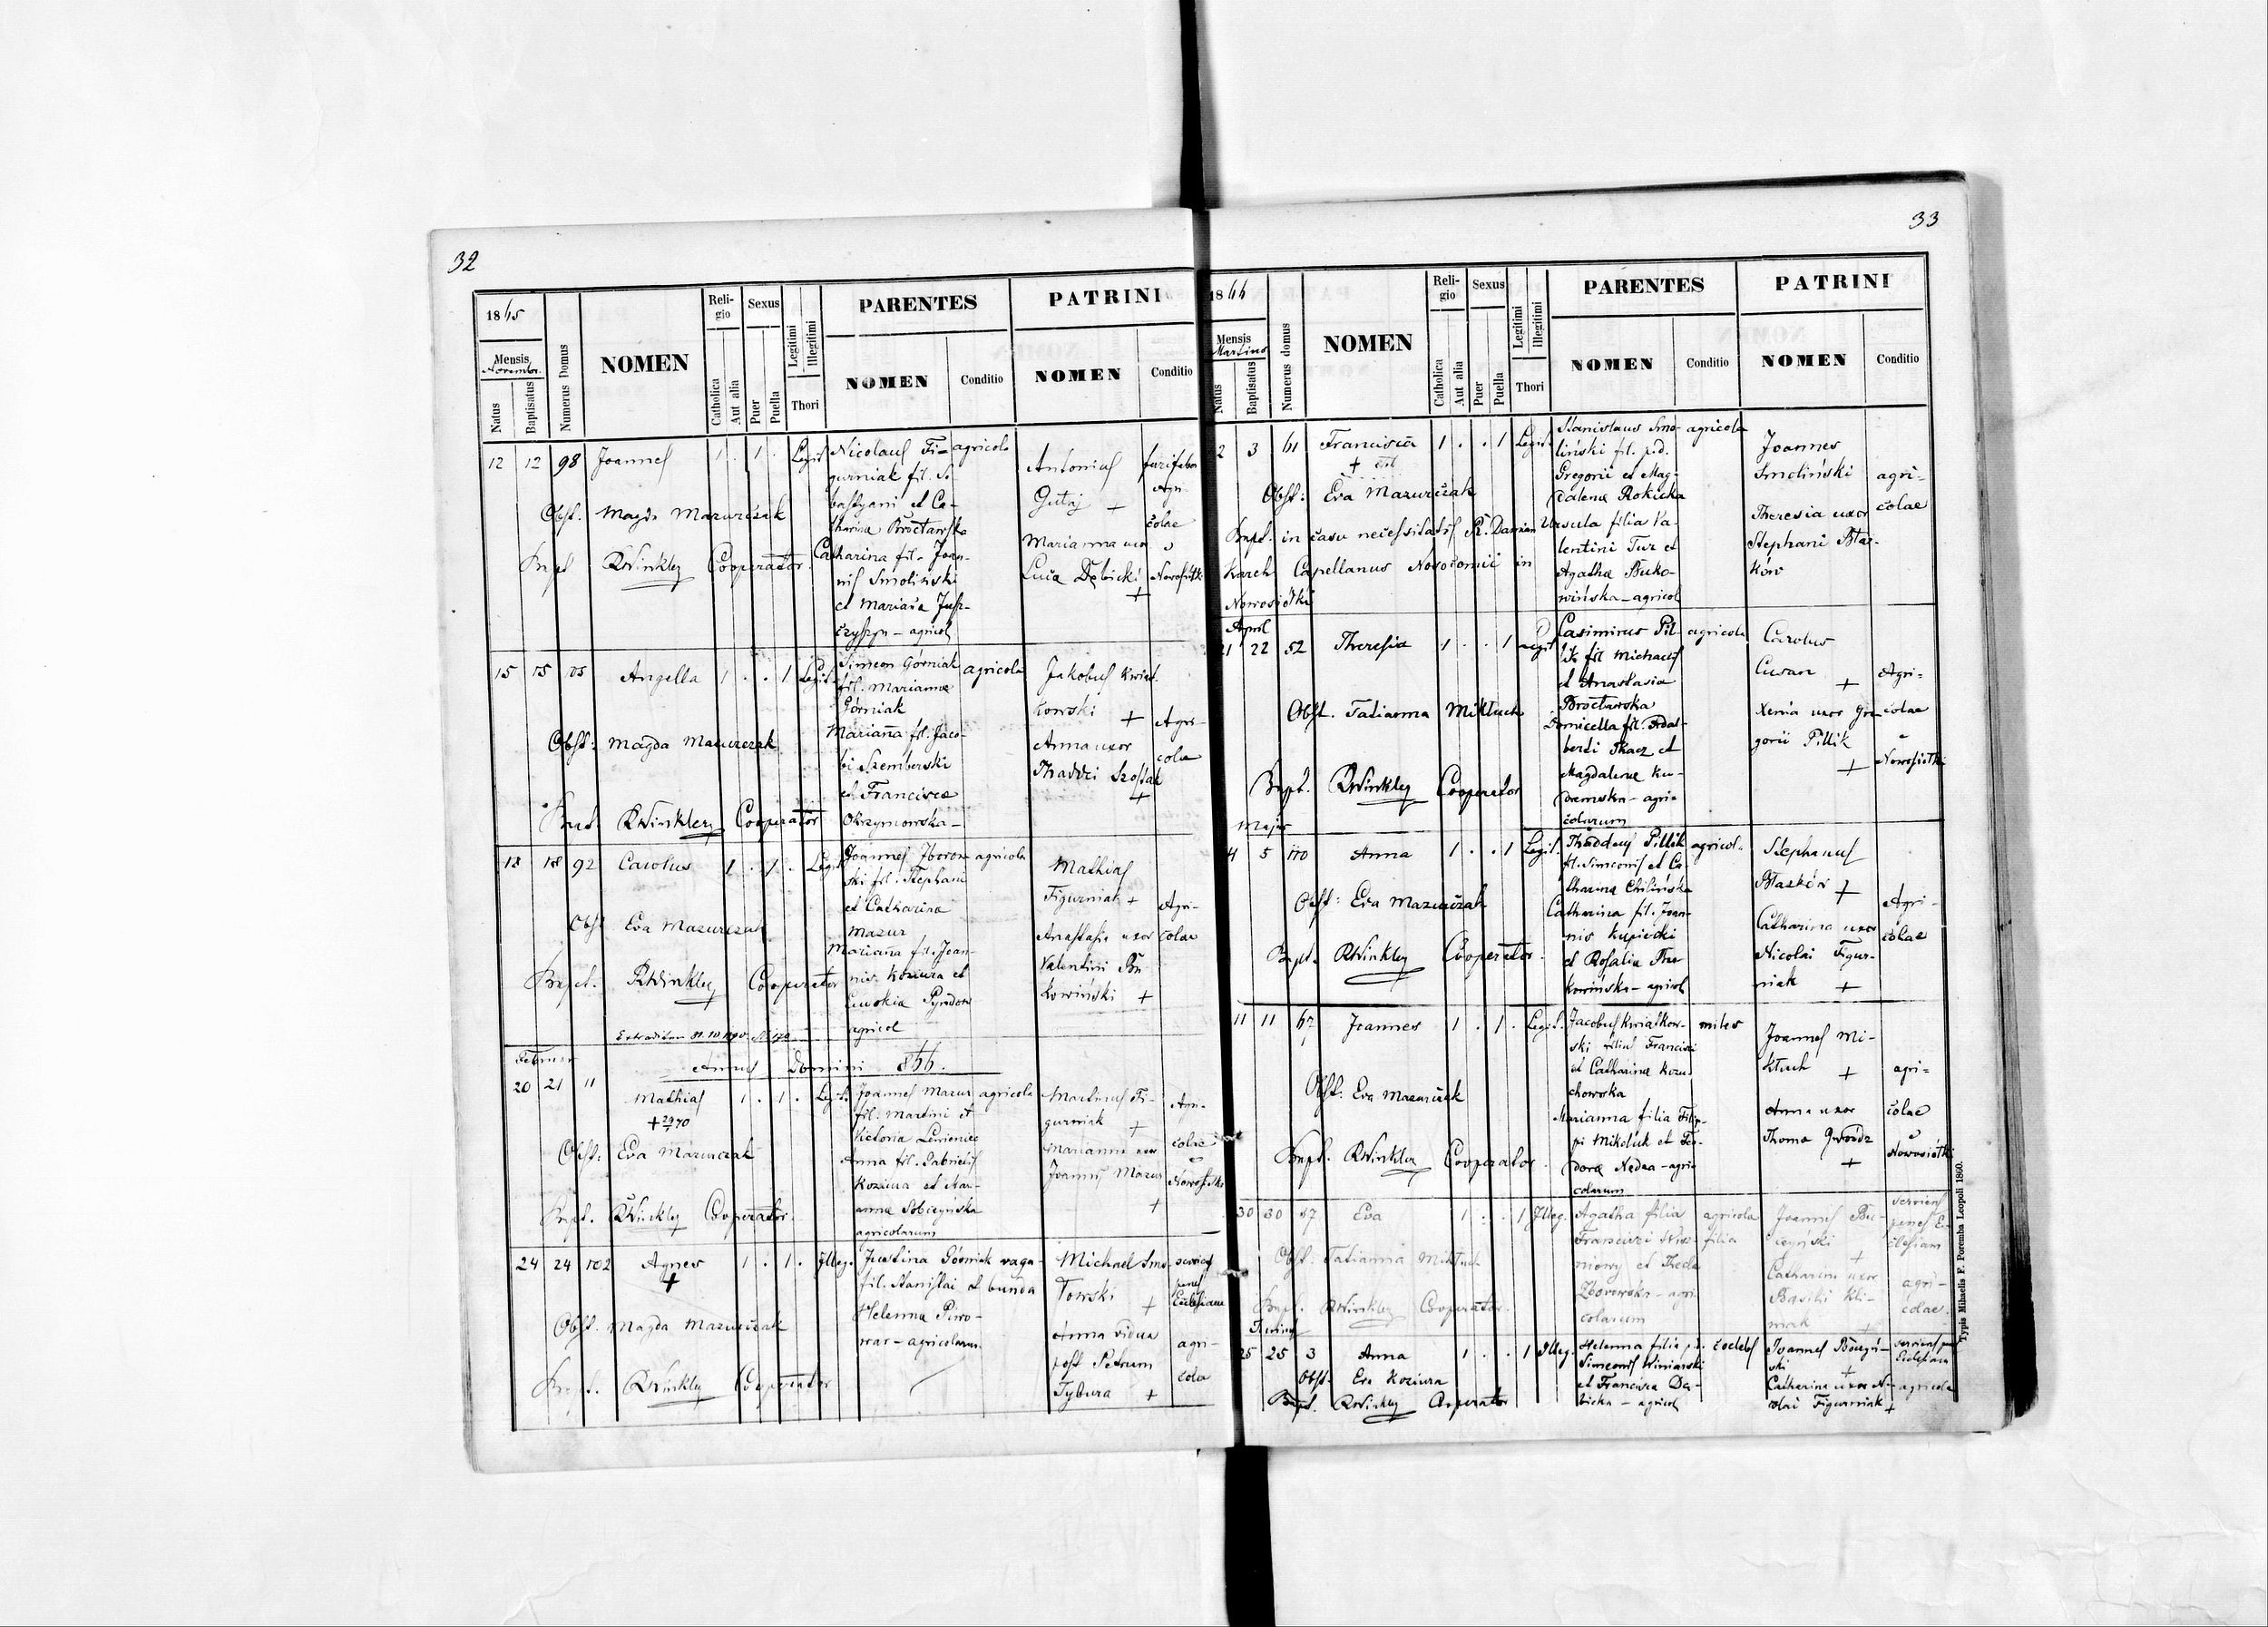 32
1865
Mensis
Novembr.
Natus
Baptisatus
Numerus Domus
NOMEN
Religio
Catholica
Aut alia
Sexus
Puer
Puella
Legitimi
Illegitimi
Thori
PARENTES
NOMEN
Conditio
PATRINI
NOMEN
Conditio
12 12 98 Joannes 1 . 1 . Legit.
Obst. Magda Mazurczak
Bapt RWinkley Cooperator
Nicolaus Fi= agricola
gurniak fil. Se-
bastyani et Ca-
tharina Broctawska
Catharina fil. Joan-
nis Smoliński
et Mariana
agricol
Antonius
Gutaj +
Marianna uxor
Luca Dębicki
+
agri-
colae
Nowosiółki
15 15 105 Angella 1 . . 1 Legit.
Obst: Magda Mazurczak
Bapt. RWinkley Cooperator
Simeon Górniak agricola
fil. Marianna
Górniak
Mariana fil. Jaco-
bi Szemberski
et Francisca
Okrzymowska -
Jakobus Kwiat-
kowski +
Anna uxor
Thaddei Szostak
+
Agri-
colae
18 18 92 Carolus 1 . 1 . Legit.
Obst Eva Mazurczak
Bapt. RWinkley Cooperator
Joannes agricola
ski fil. Stephani
et Catharina
Mazur
Mariana fil. Joan-
nis Koziura et
agricol
Mathias
Figurniak +
Anastasia uxor
Valentini Bu
kowiński +
Agri-
colae
Februar
Annus Domini 866.
20 21 11 Mathias 1 . 1 . Legit.
Obst: Eva Mazurczak
Bapt. RWinkley Cooperator.
Joannes Mazur agricola
fil. Martini et
Victoria
Anna fil. Gabrielis
Koziura et Mar-
anna Sobczyńska
agricolarum
Martinus Fi-
gurniak +
Marianna uxor
Joannis Mazur
+
Agri-
colae
Nowosiółki
24 24 102 Agnes 1 . 1 . Illeg.
+
Obst. Magda Mazurczak
Bapt. RWinkley Cooperator
Justina Górniak vaga-
fil. Stanislai et bunda
Helenna Piwo-
war - agricolarum.
Michael Smo-
+
Anna vidua
post Petrum
Tybura +
serviens
penes
Ecclesiam
agri-
cola
33
1866
Mensis
Martius
Natus
Baptisatus
Numerus domus
NOMEN
Religio
Catholica
Aut alia
Sexus
Puer
Puella
Legitimi
Illegitimi
Thori
PARENTES
NOMEN
Conditio
PATRINI
NOMEN
Conditio
2 3 61 Francisca 1 . . 1 Legit.
Obst: Eva Mazurczak
Bapt. in casu necessitatis R. Damian
Karch Capellanus in
Nowosiółki
Stanislaus Smo- agricola
liński fil. p.d.
Gregorii et Mag-
dalena Rokicka
Ursula filia Va-
lentini Tur et
Agatha Buko-
wińska - agricol
Joannes
Smoliński
Theresia uxor
Stephani Błaz-
ków
agri-
colae
April
21 22 52 Theresia 1 . . 1 Legit.
Obst. Tatianna Mikluch
Bapt. RWinkley Cooperator
Casimirus Pil- agricola
lik fil Michaelis
et Anastasia
Broctawska
Domicella fil. Adal-
berti Tkacz et
Magdalena Ku-
agri-
colarum
Carolus
Cusan +
Xenia uxor Gre-
gorii Pillik
+
Agri-
colae
Nowosiółki
Majus
4 5 110 Anna 1 . . 1 Legit.
Obst: Eva Mazurczak
Bapt. RWinkley Cooperator.
Thaddeus Pillik agricol.
fil. Simeonis et Ca-
tharina Chilińska
Catharina fil. Joan-
nis Kupiecki
et Rosalia
agricol
Stephanus
Błazków +
Catharina uxor
Nicolai Figur-
niak +
Agri-
colae
11 11 67 Joannes 1 . 1 . Legit.
Obst. Eva Mazurczak
Bapt. RWinkley Cooperator.
Jacobus Kwiatkow- miles
ski filius Francisci
et Catharina Kozu
chowska
Marianna filia Filip-
pi Mikoluk et Teo-
dora Nedza - agri-
colarum
Joannes Mi-
kluch +
Anna uxor
Thoma Gwoódz
+
agri-
colae
Nowosiółki
30 30 87 Eva 1 . . 1 Illeg.
Obst. Tatianna Mikluch
Bapt. RWinkley Cooperator.
Agatha filia agricola
filia
et Thecla
Zborowska - agri
colarum
Joannes
+
Catharina uxor
Basilii Kli-
mak +
serviens
penes Ec-
clesiam
agri-
colae.
Junius
25 25 3 Anna 1 . . 1 Illeg.
Obst. Eva Koziura
Bapt. RWinkley Cooperator
Helenna filia p.d. coelebs
Simeonis Winiarski
et Francisca Dę-
bicka - agricol
Joannes
ski +
Catharina uxor Ni-
colai Figurniak +
agricola
Typis Mihaelis F. Poremba Leopoli 1860.